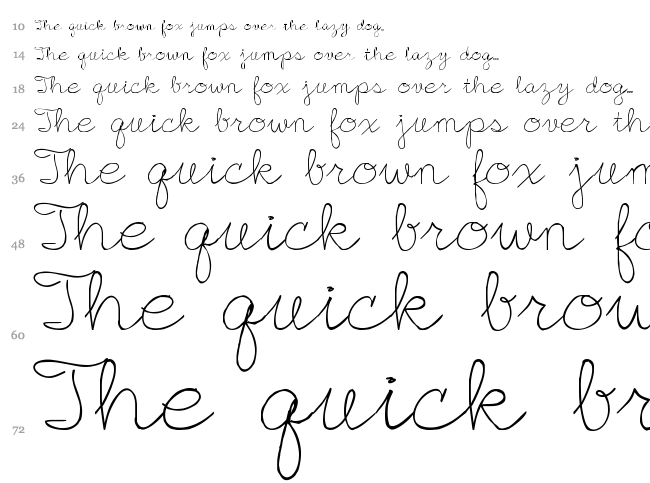 10 The quick brown fox jumps over the lazy dog...
14 The quick brown fox jumps over the lazy dog...
18 The quick brown fox jumps over the lazy dog...
24 The quick brown fox jumps over th
36 The quick brown fox jum
48 The quick brown fo
60 The quick brow
72 The quick br